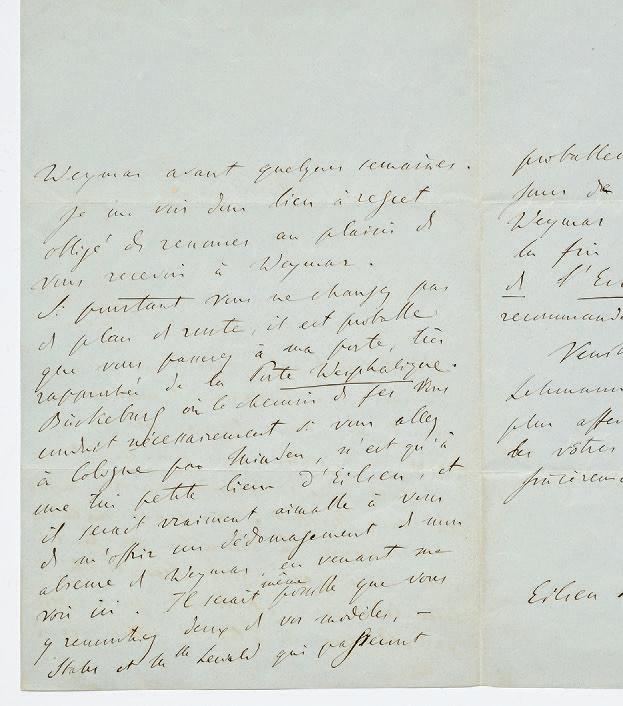 Weymar avant quelques semaines.
Je me vois donc bien à regret
obligé de renoncer au plaisir de
vous recevoir à Weymar.
Si pourtant vous ne changez pas
de plan et route, il est probable
que vous passerez à ma porte, très
rapprochée de la Porte Westphalique.
Bückeburg où le chemin de fer vous
conduit nécessairement si vous allez
à Cologne par Minden, n'est qu'à
une très petite lieue d'Eilsen, et
il serait vraiment aimable à vous
de m'offrir un dédomagement de mon
absence de Weymar, en venant me
voir ici. Il serait même possible que vous
y rencontriez deux de vos modèles, –
Stahr et Lewald qui passeront
probable
jours de
Weymar
la fin
de l'Ei
recommand
Lehmann
plus affe
les vôtres
sincèreme
Eilsen